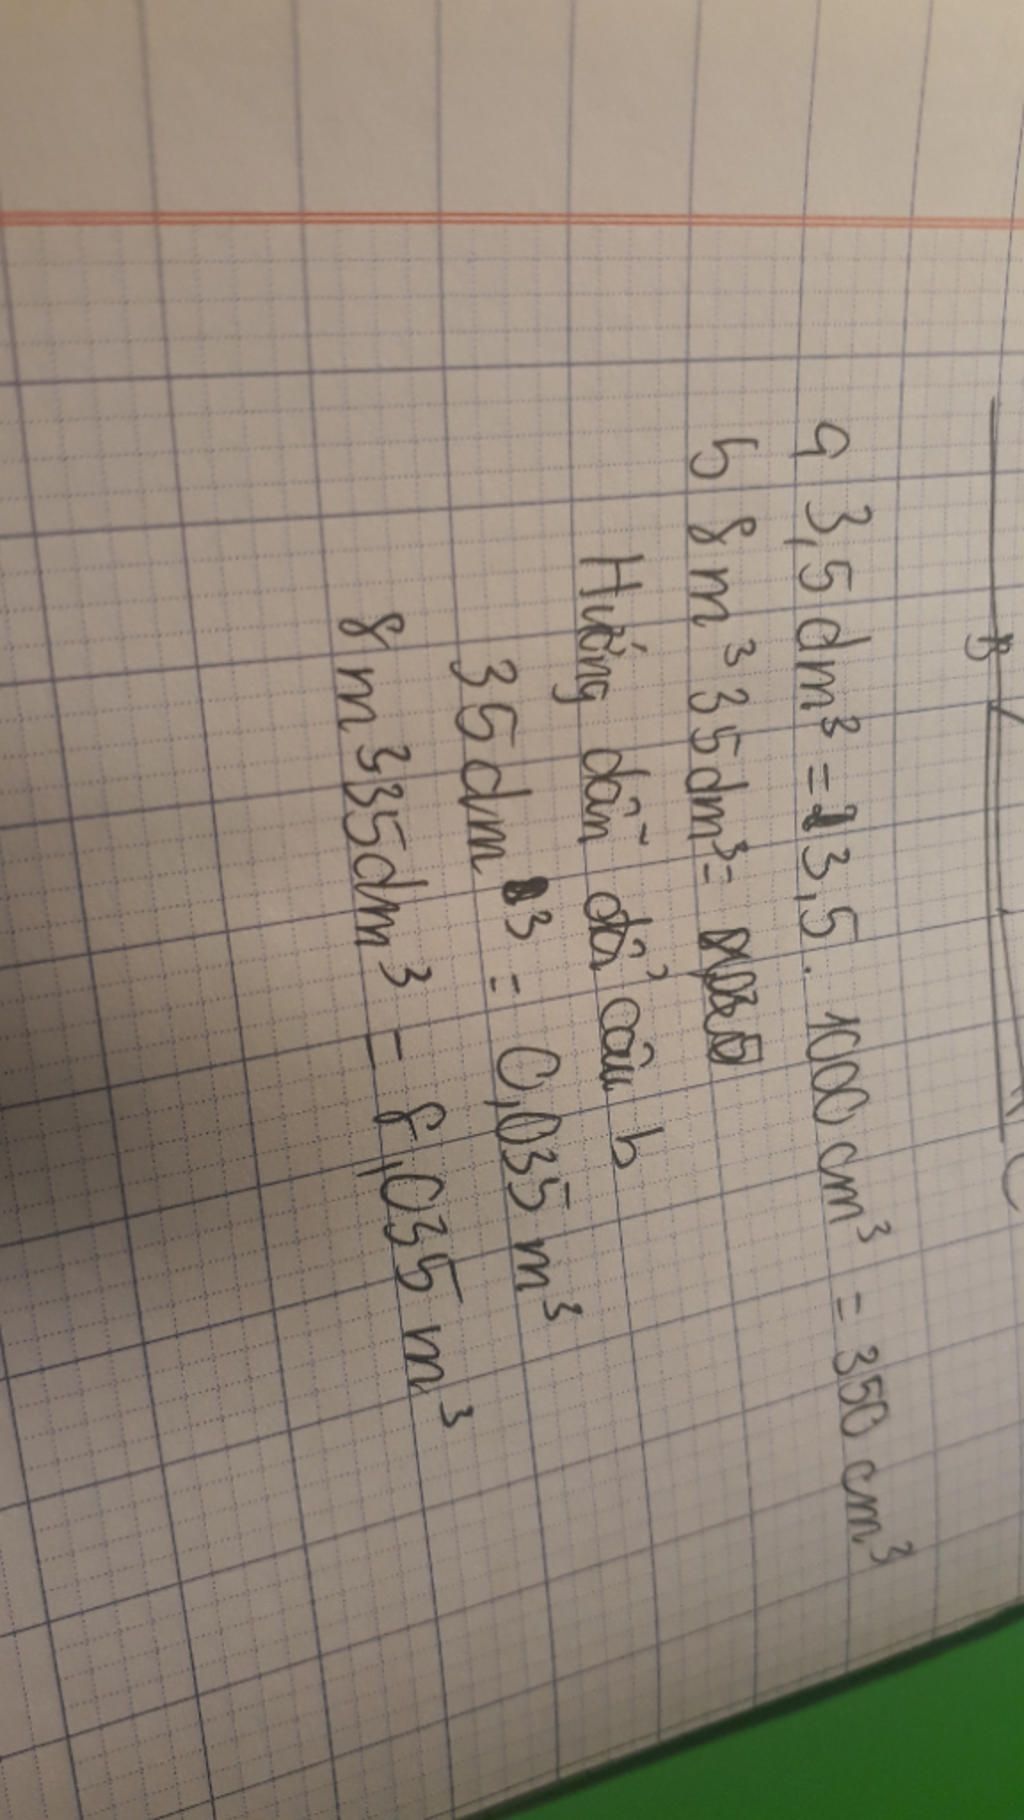 B C
a 3,5dm³ = 3,5 . 1000 cm³ = 350 cm³
b 8m³35dm³ =
Hướng dẫn đổi câu b
35dm³ = 0,035 m³
8m³35dm³ = 8,035 m³